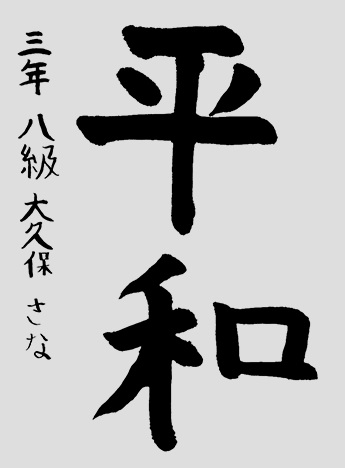 平和
三年 八級 大久保 さな